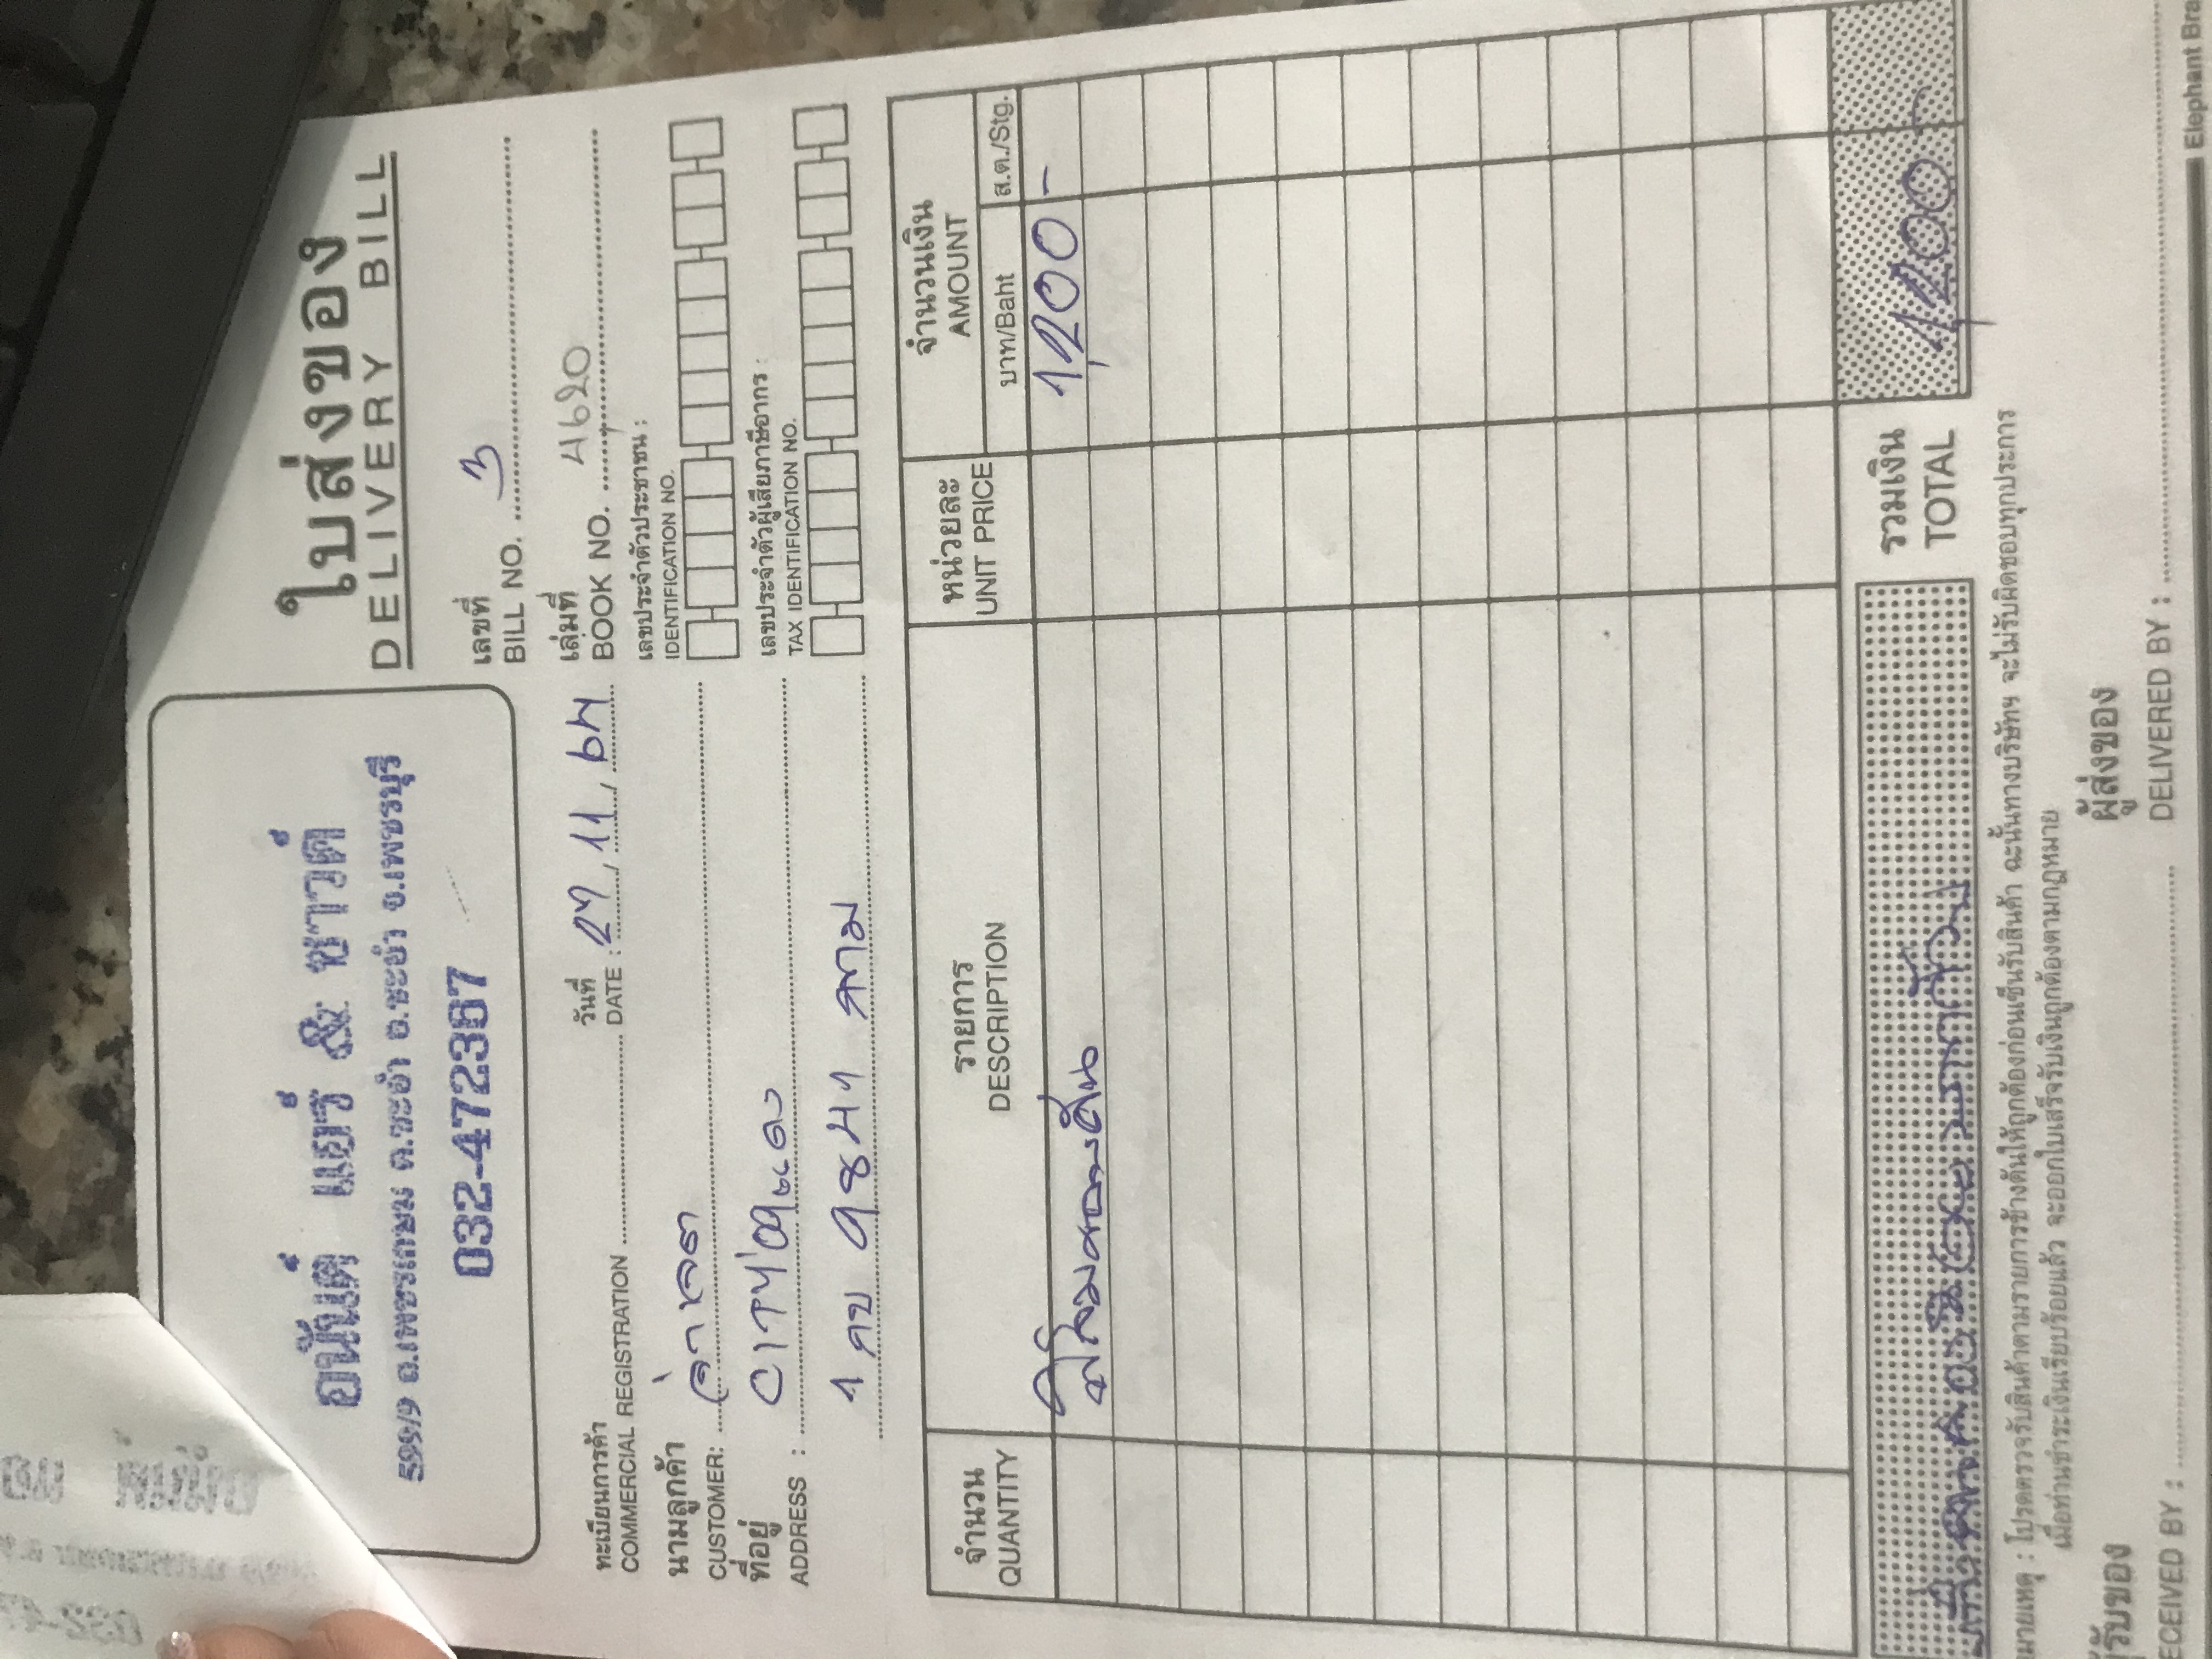 อนันต์ แอร์ & ซาวด์
599/9 ถ.เพชรเกษม ต.ชะอำ อ.ชะอำ จ.เพชรบุรี
032-472367
ใบส่งของ
DELIVERY BILL
เลขที่
BILL NO. 3
เล่มที่
BOOK NO. 4620
ทะเบียนการค้า
COMMERCIAL REGISTRATION
วันที่
DATE : 27, 11, 64
เลขประจำตัวประชาชน :
IDENTIFICATION NO.
นามลูกค้า
CUSTOMER:
ที่อยู่
ADDRESS :
เลขประจำตัวผู้เสียภาษีอากร :
TAX IDENTIFICATION NO.
จำนวน
QUANTITY
รายการ
DESCRIPTION
หน่วยละ
UNIT PRICE
จำนวนเงิน
AMOUNT
บาท/Baht
ส.ต./Stg.
1,200 -
รวมเงิน
TOTAL
1,200 -
หมายเหตุ : โปรดตรวจรับสินค้าตามรายการข้างต้นให้ถูกต้องก่อนเซ็นรับสินค้า ฉะนั้นทางบริษัทฯ จะไม่รับผิดชอบทุกประการ
เมื่อท่านชำระเงินเรียบร้อยแล้ว จะออกใบเสร็จรับเงินถูกต้องตามกฎหมาย
ผู้รับของ
RECEIVED BY :
ผู้ส่งของ
DELIVERED BY :
Elephant Bra